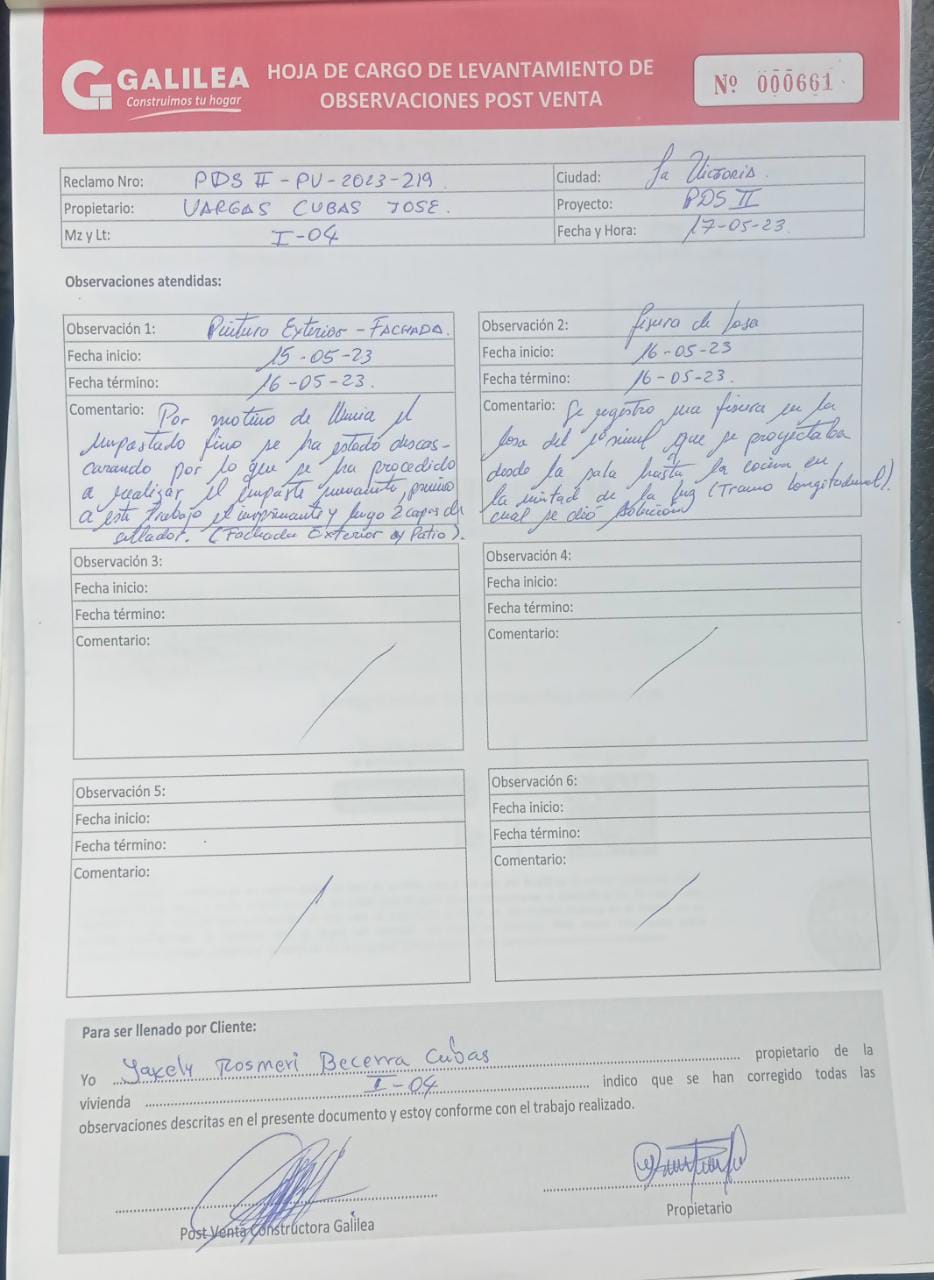 GALILEA
Construimos tu hogar
HOJA DE CARGO DE LEVANTAMIENTO DE
OBSERVACIONES POST VENTA
Nº 000661
Reclamo Nro: PDS II - PV - 2023 - 219
Ciudad: La Victoria.
Propietario: VARGAS CUBAS JOSE.
Proyecto: PDS II
Mz y Lt: I-04
Fecha y Hora: 17-05-23.
Observaciones atendidas:
Observación 1: Pintura Exterior - FACHADA.
Fecha inicio: 15-05-23
Fecha término: 16-05-23.
Comentario: Por motivo de lluvia el
empastado fino se ha estado descas-
carando por lo que se ha procedido
a realizar el empaste nuevamente, previo
a este trabajo el imprimante y luego 2 capas de
sellador. (Fachada Exterior y Patio).
Observación 2: fisura de losa
Fecha inicio: 16-05-23
Fecha término: 16-05-23.
Comentario: Se registro una fisura en la
losa del 1º nivel que se proyectaba
desde la sala hasta la cocina en
la mitad de la luz (Tramo longitudinal).
cual se dió solución
Observación 3:
Fecha inicio:
Fecha término:
Comentario:
Observación 4:
Fecha inicio:
Fecha término:
Comentario:
Observación 5:
Fecha inicio:
Fecha término:
Comentario:
Observación 6:
Fecha inicio:
Fecha término:
Comentario:
Para ser llenado por Cliente:
Yo Yakely Rosmeri Becerra Cubas propietario de la
vivienda I-04 indico que se han corregido todas las
observaciones descritas en el presente documento y estoy conforme con el trabajo realizado.
Post Venta Constructora Galilea
Propietario